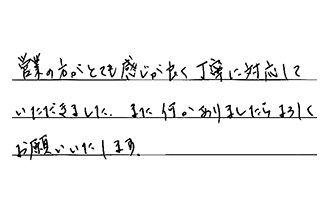 営業の方がとても感じが良く丁寧に対応して
いただきました。また何かありましたらよろしく
お願いいたします。